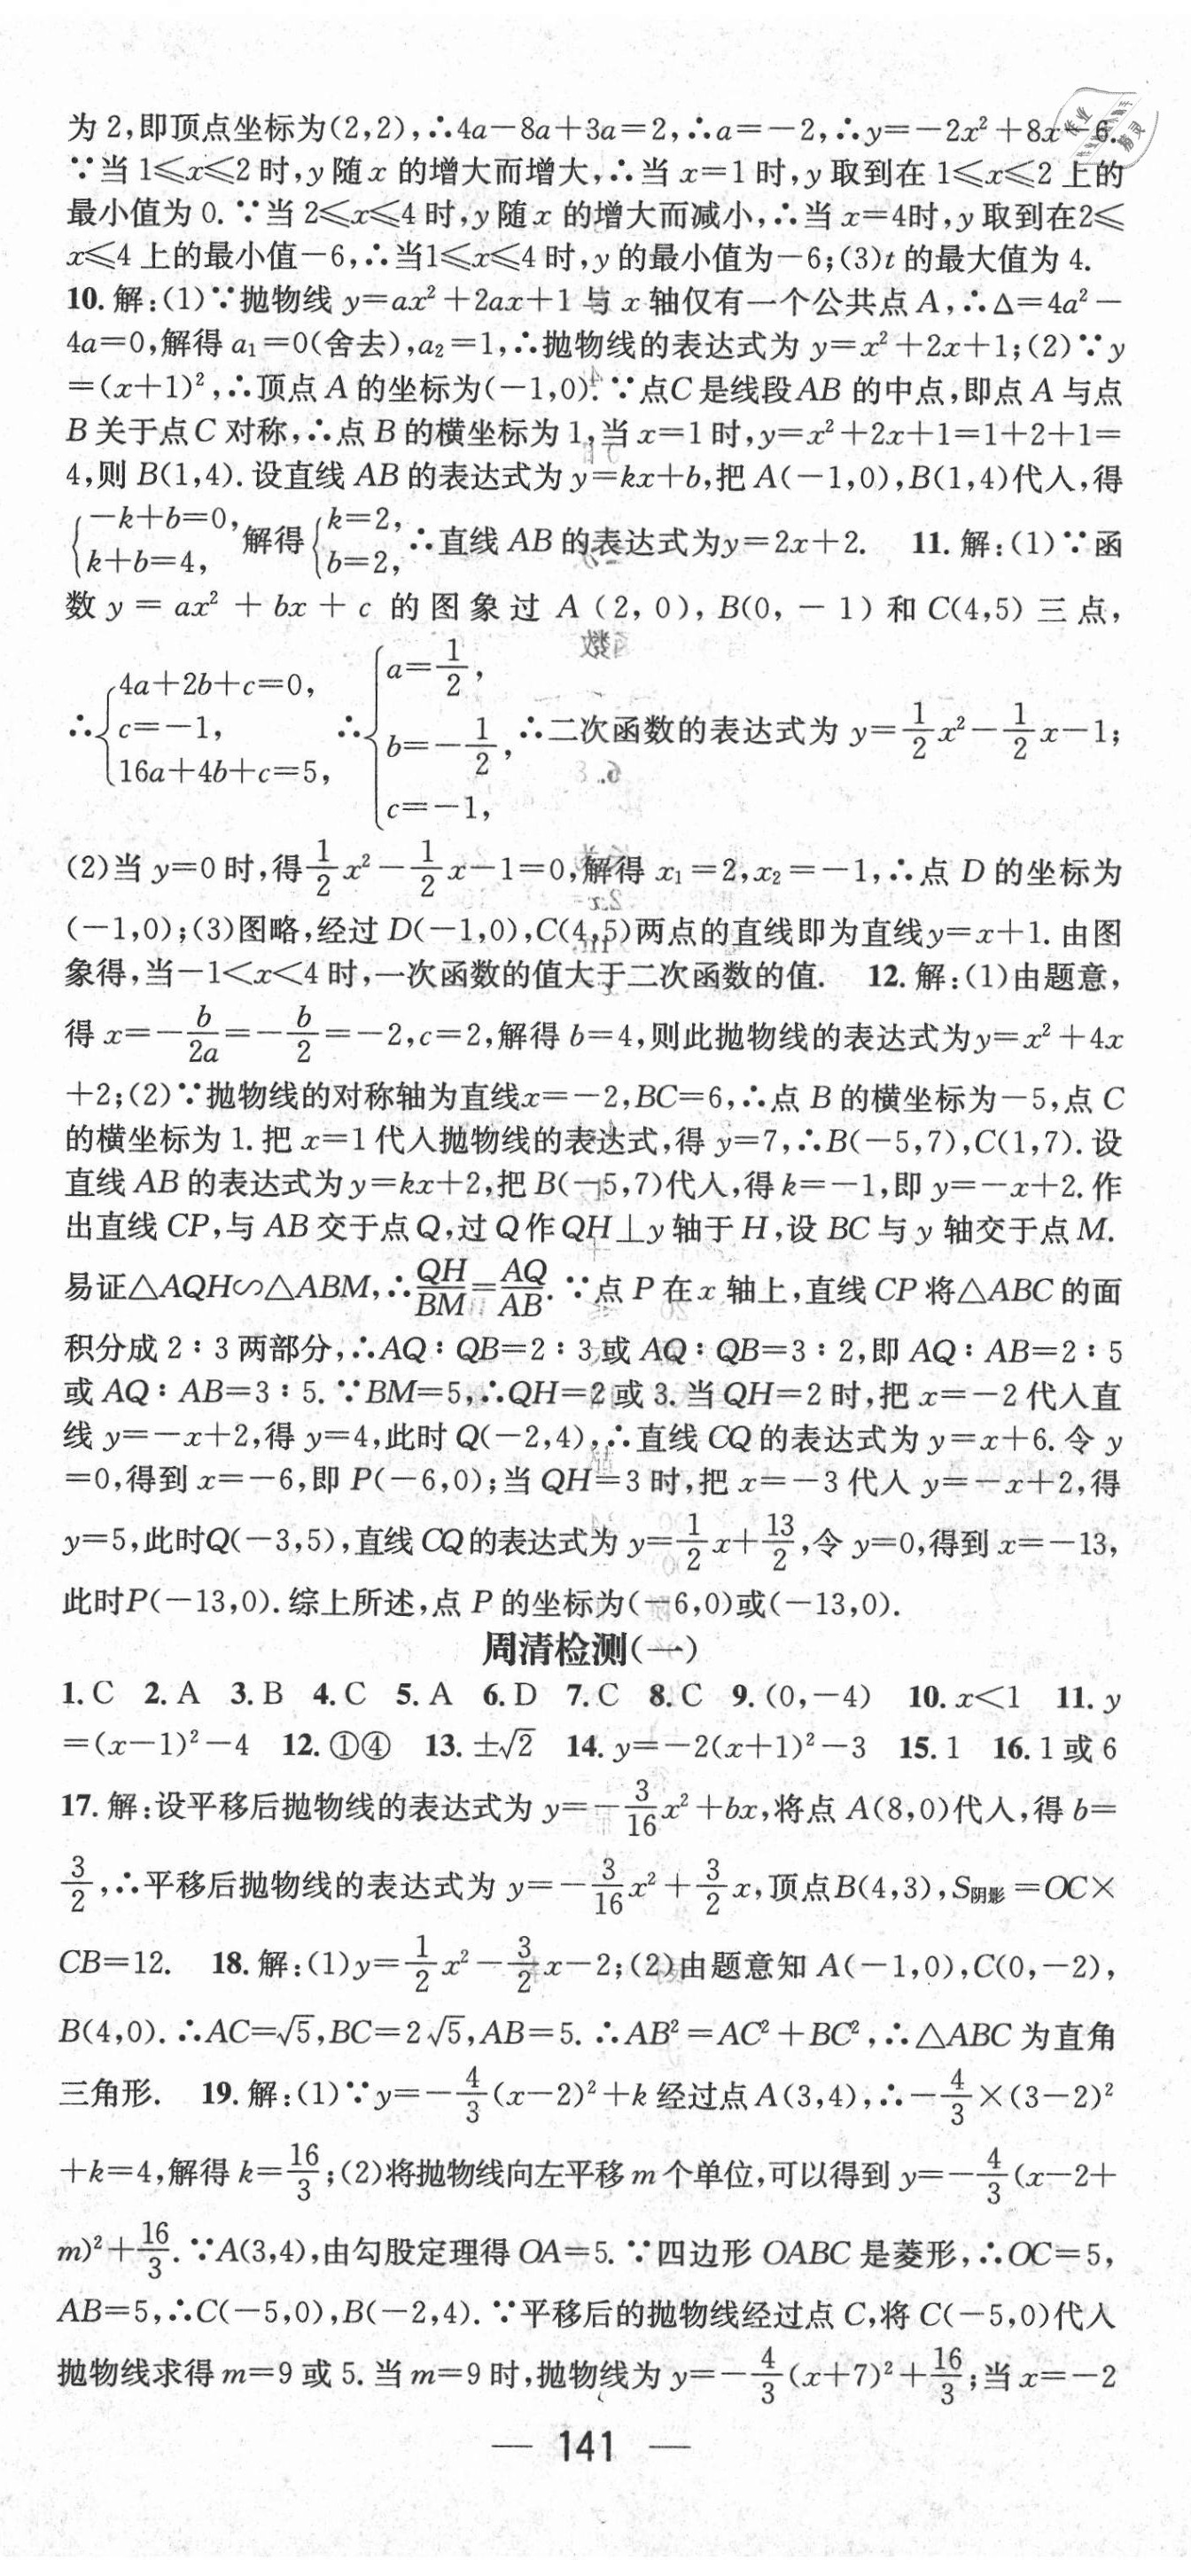 为 2,即顶点坐标为(2,2),∴4a−8a+3a=2,∴a=−2,∴y=−2x²+8x−6.
∵当 1⩽x⩽2 时,y 随 x 的增大而增大,∴当 x=1 时,y 取到在 1⩽x⩽2 上的
最小值为 0. ∵当 2⩽x⩽4 时,y 随 x 的增大而减小,∴当 x=4时,y 取到在2⩽
x⩽4 上的最小值−6,∴当1⩽x⩽4 时,y 的最小值为−6;(3)t 的最大值为 4.
10. 解:(1)∵抛物线 y=ax²+2ax+1 与 x 轴仅有一个公共点 A,∴Δ=4a²−
4a=0,解得 a₁=0(舍去),a₂=1,∴抛物线的表达式为 y=x²+2x+1;(2)∵y
=(x+1)²,∴顶点 A 的坐标为(−1,0). ∵点C 是线段AB 的中点,即点 A 与点
B 关于点 C 对称,∴点 B 的横坐标为 1,当 x=1 时,y=x²+2x+1=1+2+1=
4,则 B(1,4). 设直线 AB 的表达式为 y=kx+b,把 A(−1,0),B(1,4)代入,得
{−k+b=0, k+b=4, 解得{k=2, b=2, ∴直线 AB 的表达式为y=2x+2. 11. 解:(1)∵函
数 y = ax² + bx + c 的图象过 A (2, 0), B(0, − 1) 和 C(4,5) 三点,
∴{4a+2b+c=0, c=−1, 16a+4b+c=5, ∴{a=1/2, b=−1/2, c=−1, ∴二次函数的表达式为 y=1/2x²−1/2x−1;
(2)当 y=0 时,得1/2x²−1/2x−1=0,解得 x₁=2,x₂=−1,∴点 D 的坐标为
(−1,0);(3)图略,经过 D(−1,0),C(4,5)两点的直线即为直线y=x+1. 由图
象得,当−1<x<4 时,一次函数的值大于二次函数的值. 12. 解:(1)由题意,
得 x=−b/2a=−b/2=−2,c=2,解得 b=4,则此抛物线的表达式为y=x²+4x
+2;(2)∵抛物线的对称轴为直线x=−2,BC=6,∴点 B 的横坐标为−5,点 C
的横坐标为 1. 把 x=1 代入抛物线的表达式,得 y=7,∴B(−5,7),C(1,7). 设
直线 AB 的表达式为 y=kx+2,把 B(−5,7)代入,得 k=−1,即 y=−x+2. 作
出直线 CP,与 AB 交于点 Q,过 Q 作 QH⊥y 轴于 H,设 BC 与 y 轴交于点 M.
易证△AQH∽△ABM,∴QH/BM=AQ/AB. ∵点 P 在 x 轴上,直线 CP 将△ABC 的面
积分成 2∶3 两部分,∴AQ∶QB=2∶3 或 AQ∶QB=3∶2,即 AQ∶AB=2∶5
或 AQ∶AB=3∶5. ∵BM=5,∴QH=2 或 3. 当 QH=2 时,把 x=−2 代入直
线 y=−x+2,得 y=4,此时 Q(−2,4),∴直线 CQ 的表达式为 y=x+6. 令 y
=0,得到 x=−6,即 P(−6,0);当 QH=3 时,把 x=−3 代入 y=−x+2,得
y=5,此时Q(−3,5),直线 CQ的表达式为 y=1/2x+13/2,令 y=0,得到 x=−13,
此时P(−13,0). 综上所述,点 P 的坐标为(−6,0)或(−13,0).
周清检测(一)
1. C 2. A 3. B 4. C 5. A 6. D 7. C 8. C 9. (0,−4) 10. x<1 11. y
=(x−1)²−4 12. ①④ 13. ±√2 14. y=−2(x+1)²−3 15. 1 16. 1 或 6
17. 解:设平移后抛物线的表达式为 y=−3/16x²+bx,将点 A(8,0)代入,得 b=
3/2,∴平移后抛物线的表达式为 y=−3/16x²+3/2x,顶点B(4,3),S阴影=OC×
CB=12. 18. 解:(1)y=1/2x²−3/2x−2;(2)由题意知 A(−1,0),C(0,−2),
B(4,0). ∴AC=√5,BC=2√5,AB=5. ∴AB²=AC²+BC²,∴△ABC 为直角
三角形. 19. 解:(1)∵y=−4/3(x−2)²+k 经过点 A(3,4),∴−4/3×(3−2)²
+k=4,解得 k=16/3;(2)将抛物线向左平移 m 个单位,可以得到 y=−4/3(x−2+
m)²+16/3. ∵A(3,4),由勾股定理得 OA=5. ∵四边形 OABC 是菱形,∴OC=5,
AB=5,∴C(−5,0),B(−2,4). ∵平移后的抛物线经过点 C,将 C(−5,0)代入
抛物线求得 m=9 或 5. 当 m=9 时,抛物线为 y=−4/3(x+7)²+16/3;当 x=−2
— 141 —